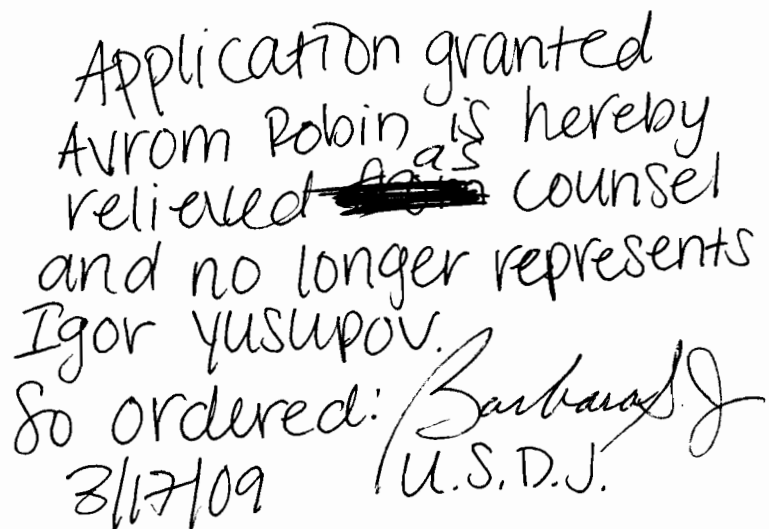 Application granted
Avrom Robin is hereby
relieved as counsel
and no longer represents
Igor Yusupov.
So ordered: Barbara S. J
3/17/09 U.S.D.J.